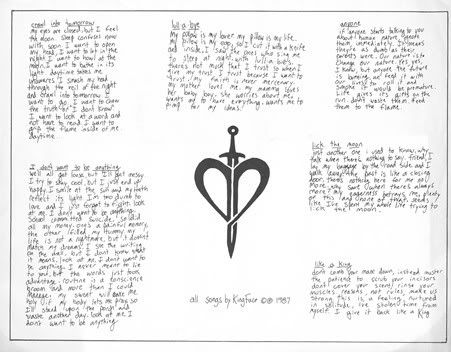 crawl into tomorrow
my eyes are closed but I feel
the moon sleep confuses now
with soon I want to open
my head, I want to let in the
night I want to howl at the
moon I want to bathe in its
light daytime takes me
under as I smash my head
through the veil of the night
and crawl into tomorrow to
want to go. I want to chew
the truth or I don't know
I want to look at a word and
not have to read. I want to
the flame inside of me
daytime
I don't want to be anything
well all get loose but I'll get messy
I try to stay cool, but I just end up
happy. I smile at the sun and my teeth
reflect its light I'm too dumb to
love and I just forgot to fight. look
at me, I don't want to be anything.
School committed suicide, so did
all my money. one's a painful memory,
the other filled my tummy my
life is not a nightmare, but it doesn't
match my dreams. I see the writing
on the wall, but I don't know what
it means. look at me, I don't want to
be anything. I never meant to lie
to you, but the words just took
advantage. routine is a conscience
broom and more than I could
manage. my sweat will bathe me
I'll stand upon the porch and
waste another day. look at me I
don't want to be anything
lull-a-bye
my pillow is my lover my pillow is my life
my pillow is my soap, so I cut it with a knife
and inside, I saw the ones who sing me
to sleep at night with lull-a-byes.
theres not much that I trust to when I
give my trust I trust because I want to
trust. nothing isn't a mere mercenary.
my mother loves me, my mommy loves
her baby boy, she worries about me,
wants me to have everything, wants me to
pimp for my ideas.
all songs by Kingface ©℗ 1987
anyone
if anyone starts talking to you
about human nature, ignore
them immediately. It means
they're as dumb as their
parents were. Our nature is to
change our nature. yes yes,
I know but anyone the future
is burning, we feed it with
our lives to not it and
imagine it would be premature.
Life gives its gifts on the
run. don't waste them. Feed
them to the flame.
lick the moon
just another one I used to know, why
talk when there's nothing to say. friend, I
lay my baggage by the road side and I
walk away. the past is like a closing
door, theres nothing here for me any
more. why save when there's always
more? my eagerness betrays me, plenty
of this land (none of that) seeds I
like I've spent my whole life trying to
lick the moon.
like a King
don't comb your mane down, instead muster
the patients to scrub your incisors
don't cover your scent, rinse your
muscles. reasons, not rules, make us
strong. this is a feeling, nurtured
in solitude, I've stolen time from
myself. I give it back like a King